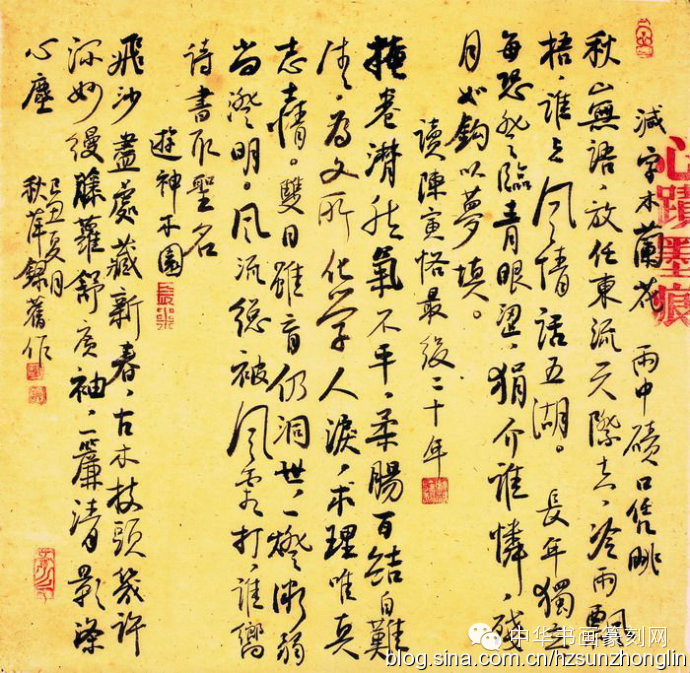 心蹟墨痕
減字木蘭花 雨中磧口凭眺
秋山無語，放任東流天際去，冷雨飄
梧，誰與風情話五湖。長年獨立
每恐登臨青眼望，狷介誰憐，殘
月如鉤以夢填。
讀陳寅恪最後二十年
掩卷潸然氣不平，柔腸百結自難
清，為文所化學人淚，求理唯真
志士情。雙目雖盲仍洞世，一燈漸弱
尚澄明。風流總被風霜打，誰嚮
詩書取聖名
遊神木園
飛沙盡處藏新春，古木枝頭幾許
深妙縵藤蘿舒廣袖，一簾清影滌
心塵
己丑夏月
秋萍錄舊作
中华书画篆刻网
blog.sina.com.cn/hzsunzhonglin